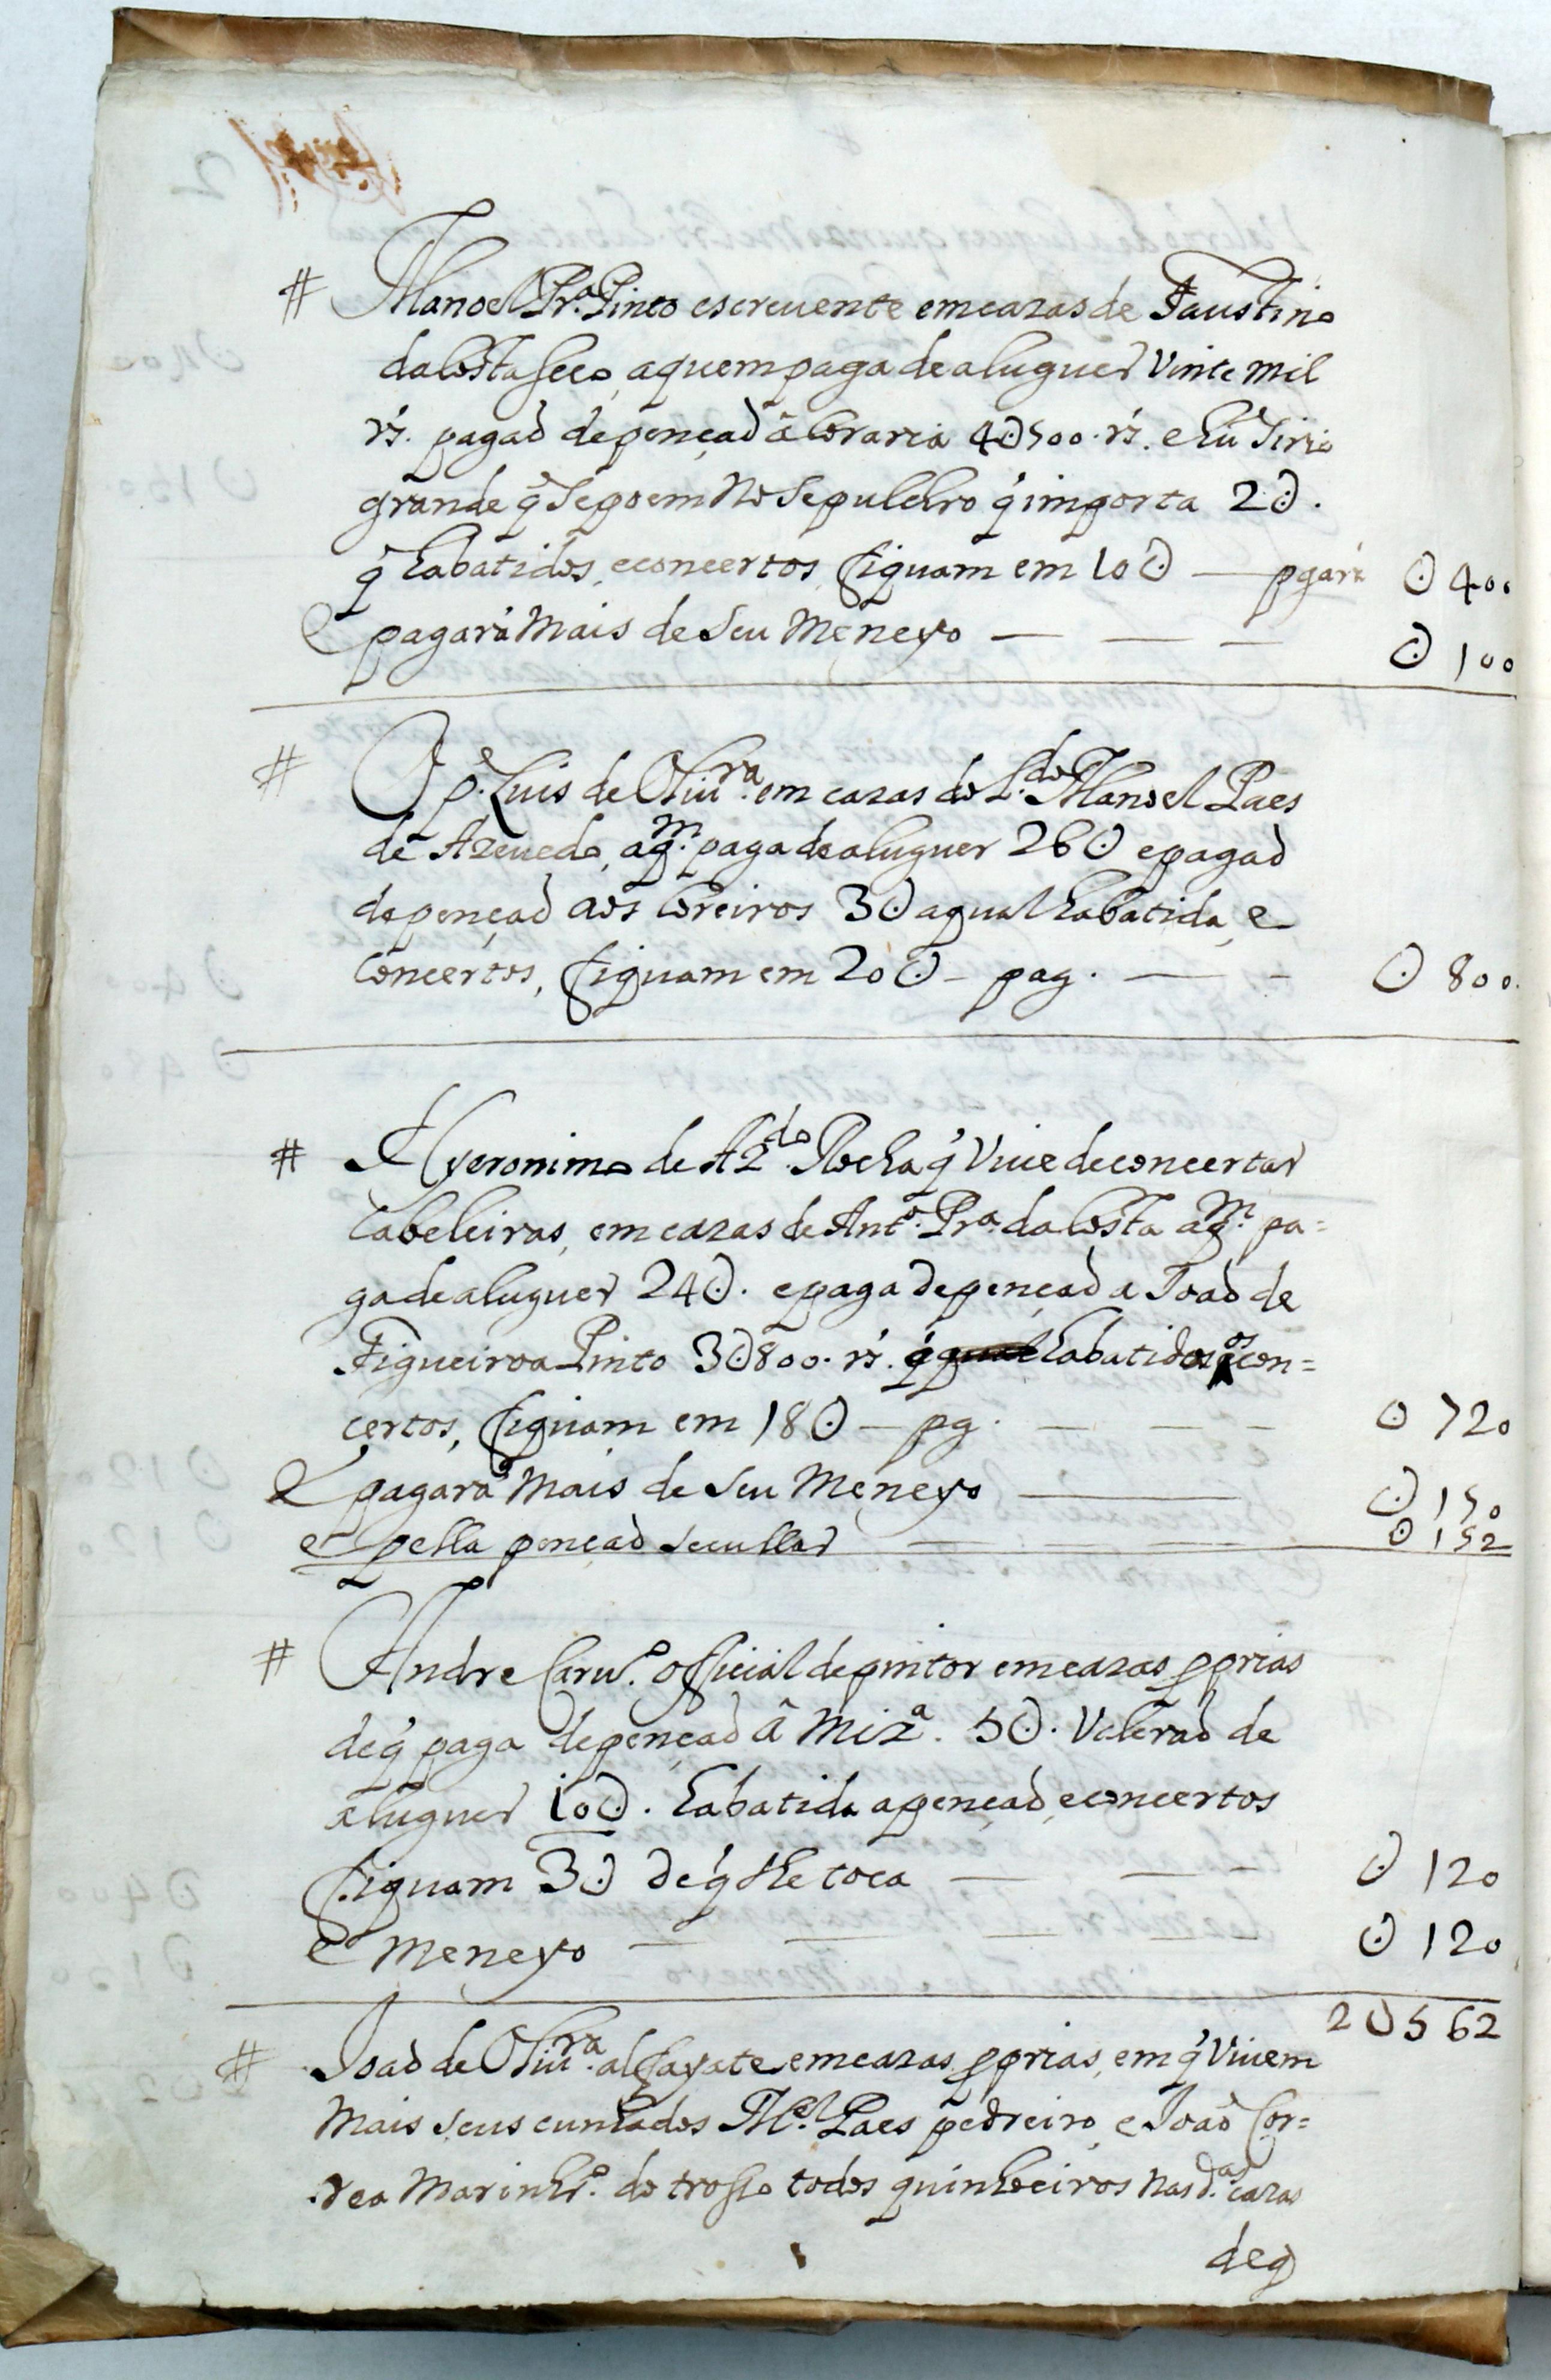 # Manoel Pr.ª Pinto escreuente em cazas de Faustino
da Costa seco, a quem paga de aluguer Vinte mil
rs. pagaõ de pençaõ â Coraria 4U500. rs. e hũ Sirio
grande q̃ Se poem No Sepulchro q̃ importa 2U.
q̃ habatidos, e concertos, ficquam em 10U — pgará U400
E pagará Mais de Seu Meneyo — — — U100
# O p.e Luis de Oliu.ra em cazas do L.do Manoel Paes
de Azeuedo, a q.m paga de aluguer 26U e pagaõ
de pençaõ aos Coreiros 3U a qual habatida, e
Concertos, ficquam em 20U – pag. — – U800.
# Hyeronimo de Az.do Rocha q̃ Viue de concertar
Cabeleiras, em cazas de Ant.o Pr.a da Costa a q.m pa=
ga de aluguer 24U. e paga de pençaõ a Joaõ de
Figueiroa Pinto 3U800. rs. q̃ habatidos os con=
certos, ficquam em 18U — pg. — — — U720
E pagará Mais de Seu Meneyo — U150
e pella pençaõ Secullar — — U152
# Andre Caru.o official de pintor em cazas pprias
de q̃ paga de pençaõ â Miz.a 5U. Valeraõ de
aluguer 10U. habatida a pençaõ, e concertos
ficquam 3U de q̃ lhe toca — — – U120
e Meneyo — — — — — U120
2U562
# Joaõ de Oliu.ra alfayate em cazas pprias, em q̃ Viuem
Mais Seus cunhados M.el Paes pedreiro, e Joaõ Cor=
rea Marinhr.o do troço todos quinhoeiros Nas d.as cazas
de q̃